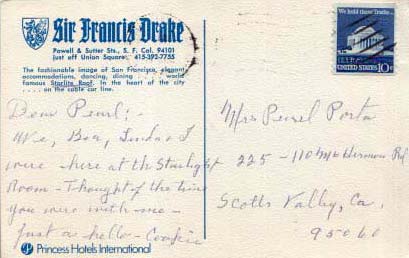 Sir Francis Drake
Powell & Sutter Sts., S. F. Cal. 94101
Just off Union Square 415-392-7755
The fashionable image of San Francisco, elegant
accommodations, dancing, dining . . . world
famous Starlite Roof. In the heart of the city
. . . . on the cable car line.
Dear Pearl:-
Bea, Linda & I
were here at the Starlight
Room - Thought of the time
you were with me -
Just a hello - Cookie
Princess Hotels International
We hold these Truths...
UNITED STATES 10c
Mrs Pearl Porta
225 - 110 Mt Hermon Rd
Scotts Valley, Ca.
95060